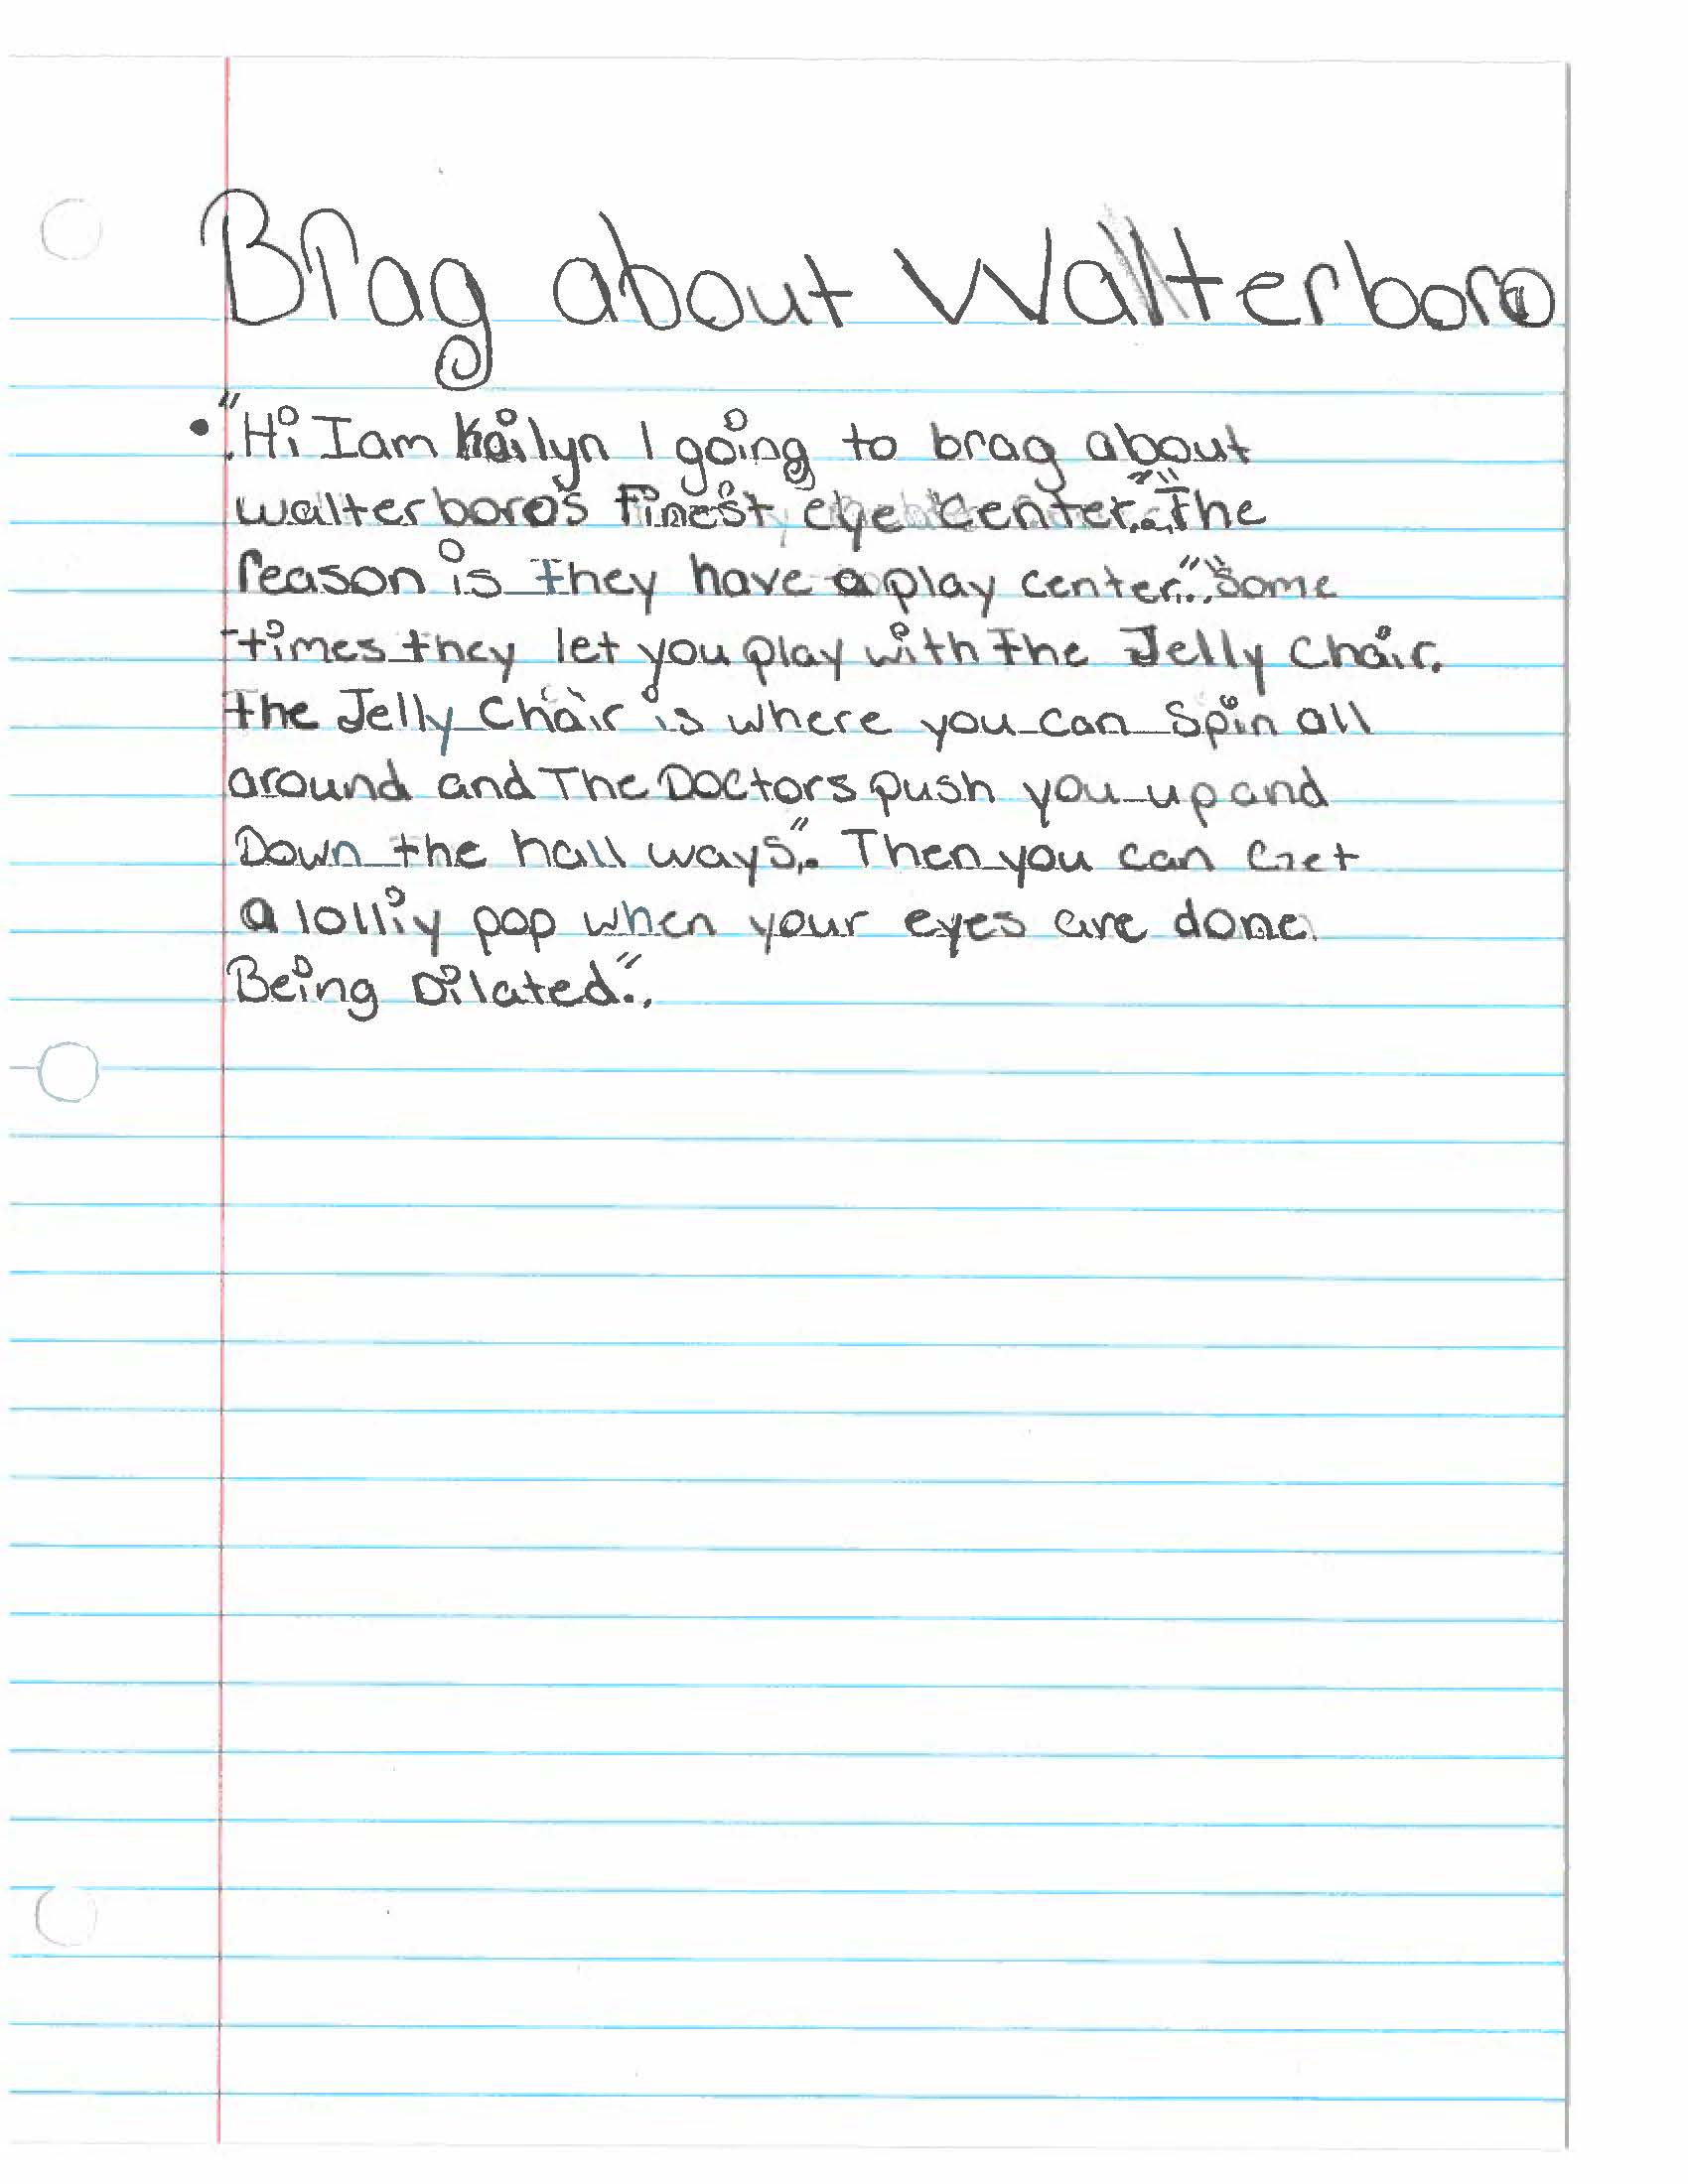 Brag about Walterboro
• "Hi I am Kailyn I going to brag about
walterboro's finest eye center." "The
reason is they have a play center.", "Some
times they let you play with the Jelly Chair.
the Jelly Chair is where you can Spin all
around and The Doctors push you up and
Down the hall ways,". Then you can Get
a lolliy pop when your eyes are done.
Being Dilated.",